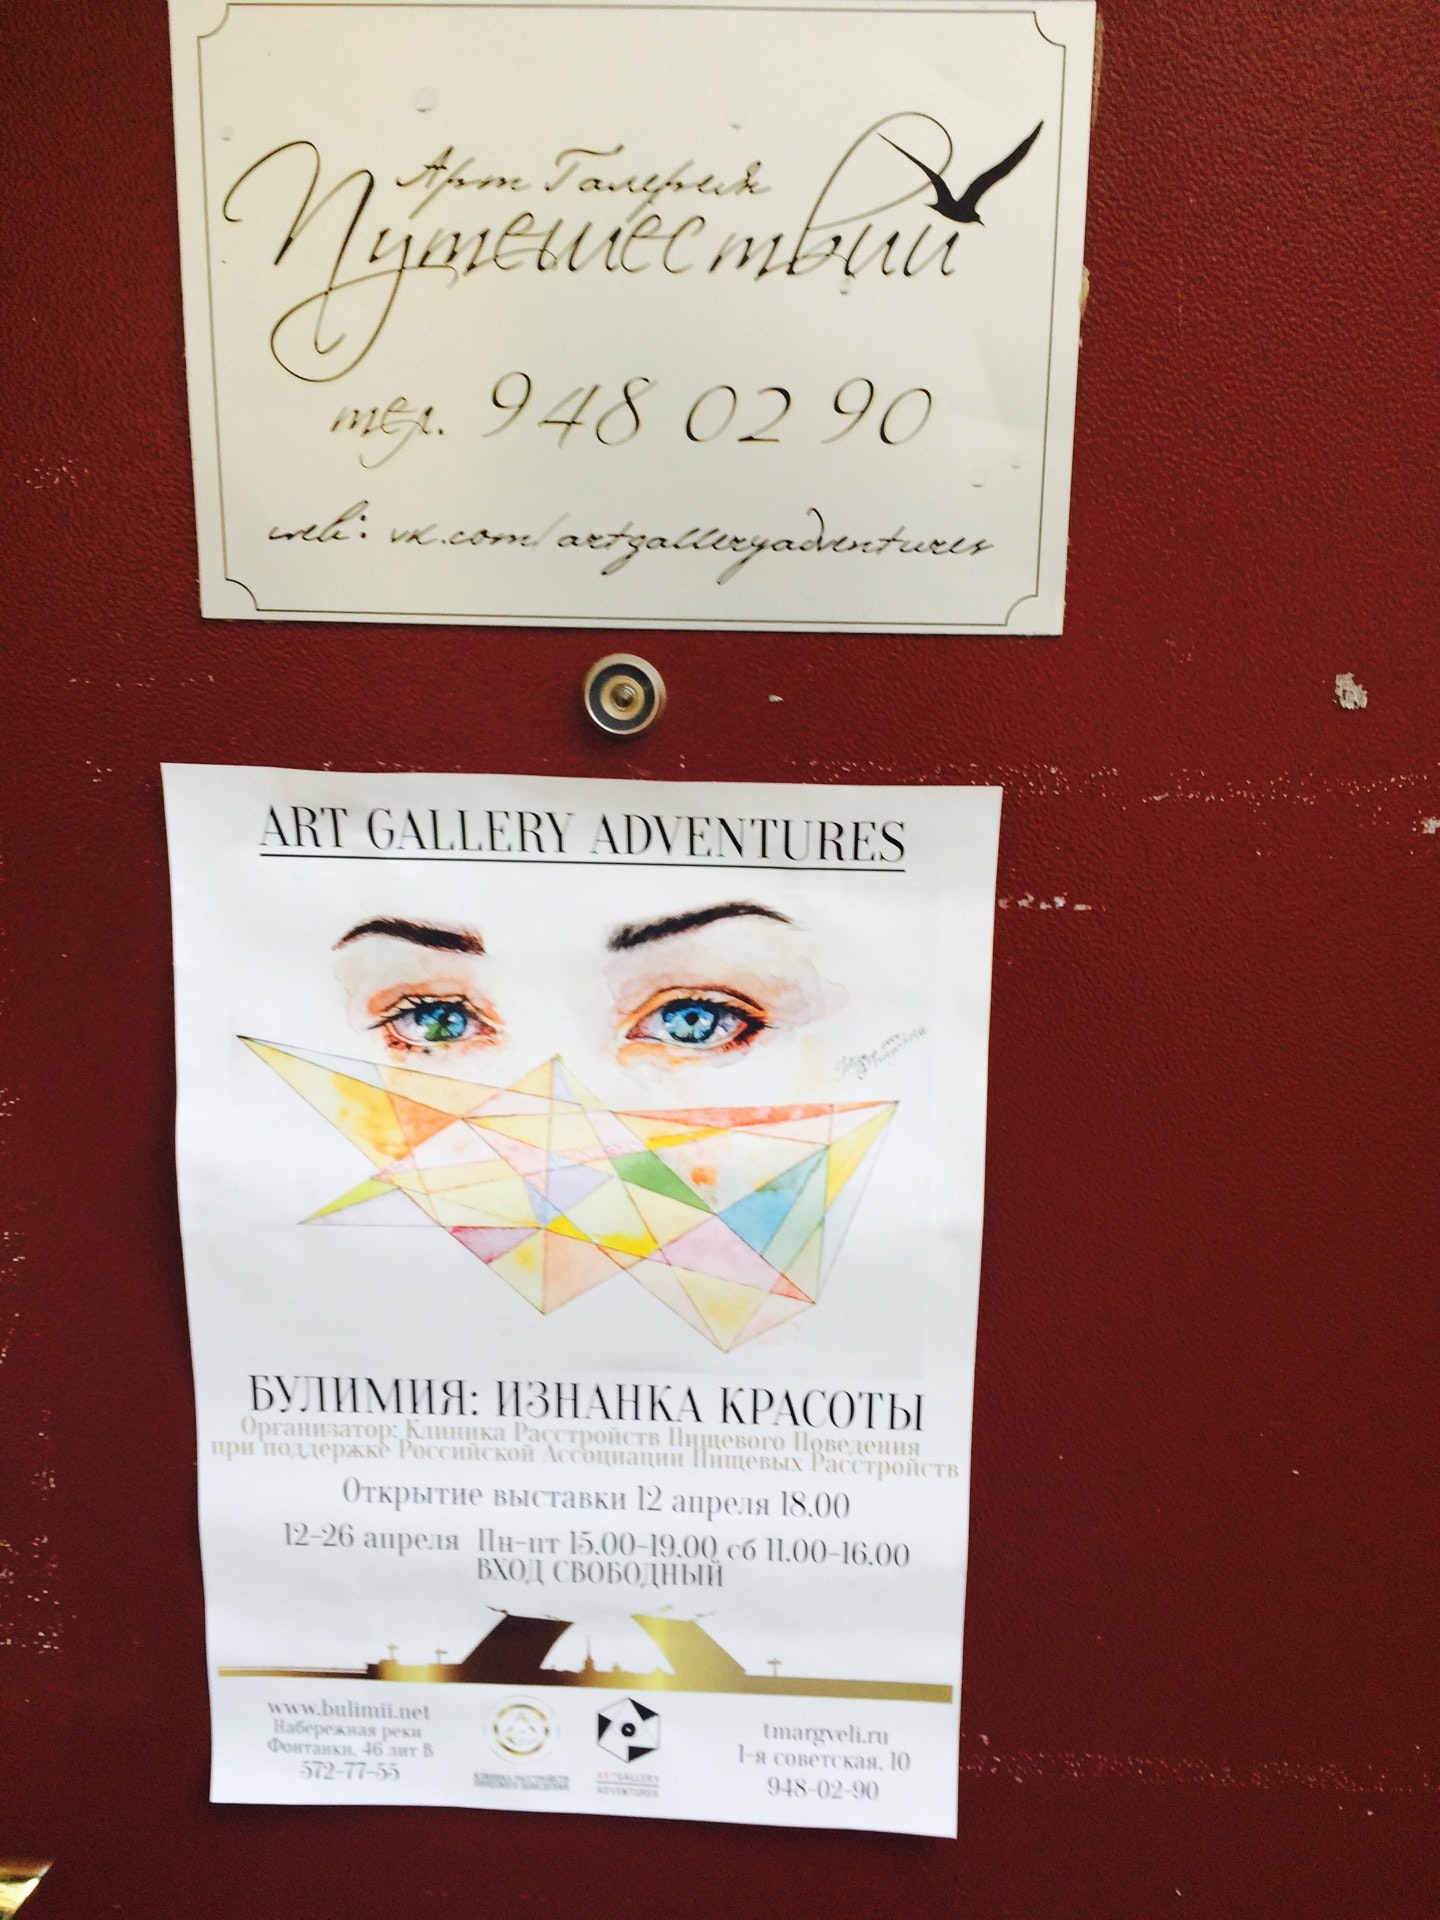 Арт Галерея
Путешествий
тел. 948 02 90
web: vk.com/artgalleryadventures
ART GALLERY ADVENTURES
БУЛИМИЯ: ИЗНАНКА КРАСОТЫ
Организатор: Клиника Расстройств Пищевого Поведения
при поддержке Российской Ассоциации Пищевых Расстройств
Открытие выставки 12 апреля 18.00
12-26 апреля Пн-пт 15.00-19.00 сб 11.00-16.00
ВХОД СВОБОДНЫЙ
www.bulimii.net
Набережная реки
Фонтанки, 46 лит В
572-77-55
КЛИНИКА РАССТРОЙСТВ
ПИЩЕВОГО ПОВЕДЕНИЯ
ARTGALLERY
ADVENTURES
tmargveli.ru
1-я советская, 10
948-02-90